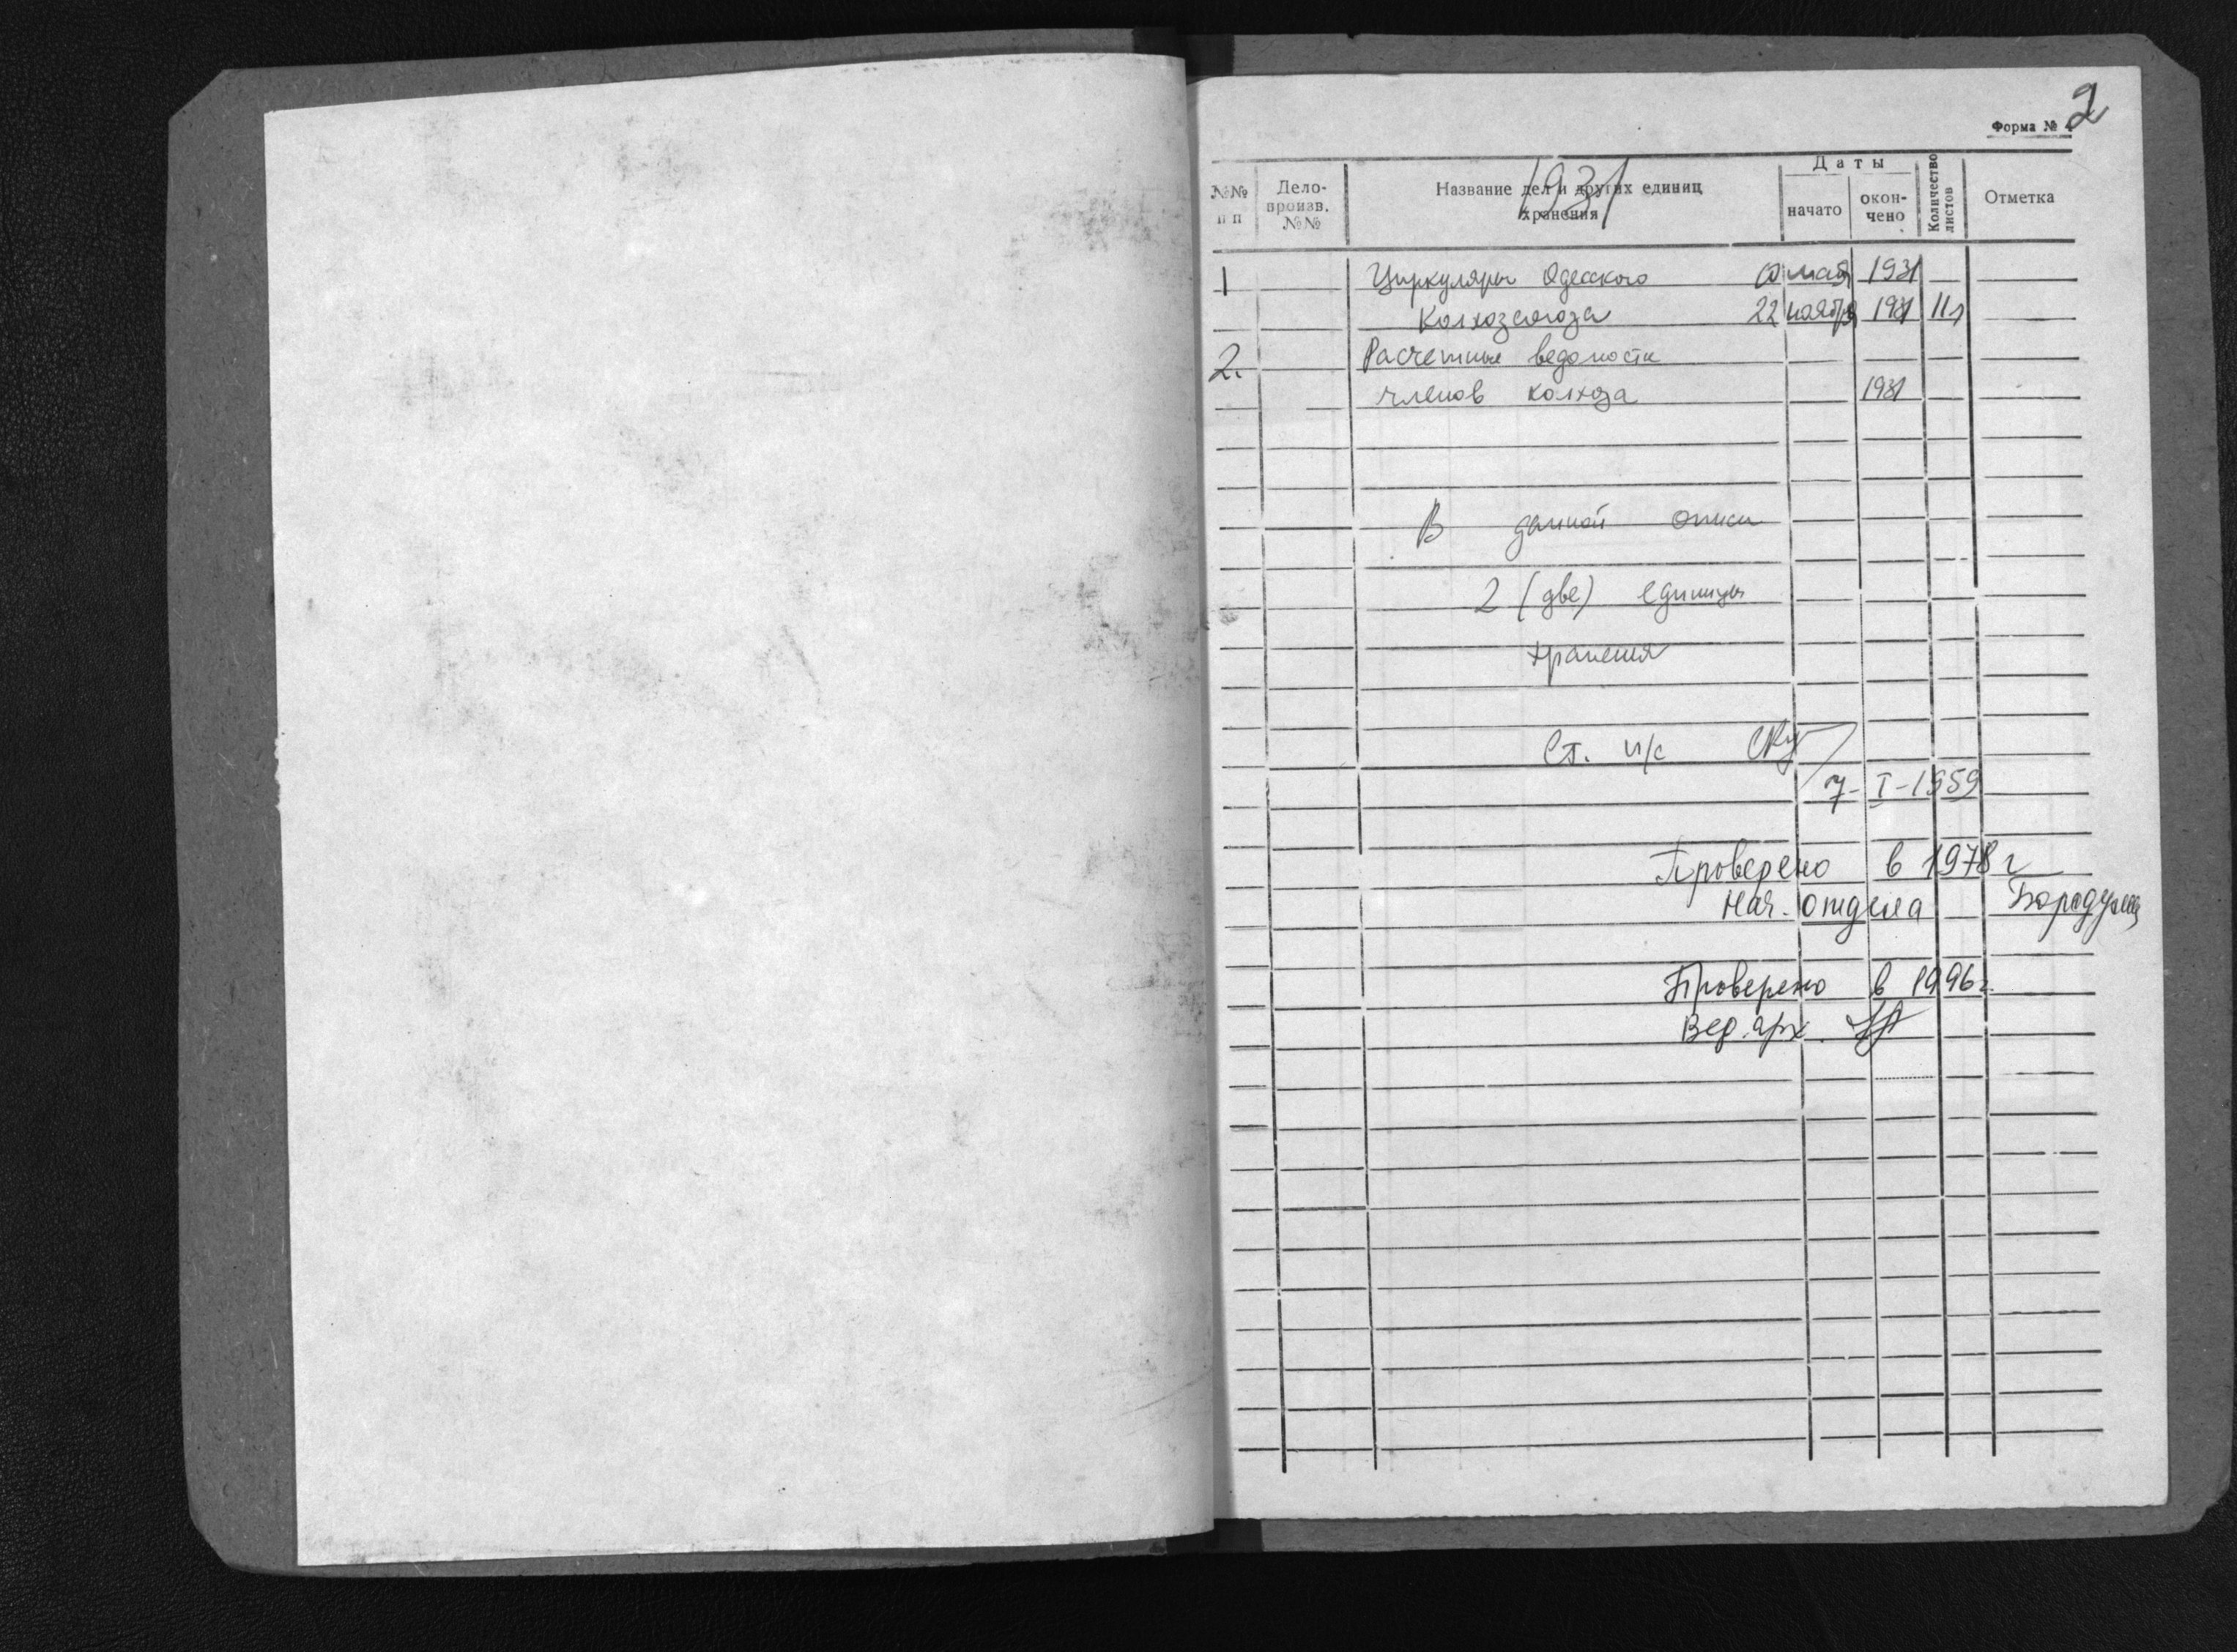 2
Форма № 4
1931
№№ п п
Дело-произв. №№
Название дел и других единиц хранения
Даты
начато
окон-чено
Количество листов
Отметка
1 Циркуляры Одесского 10 мая 1931
Колхозсоюза 22 ноября 1931 11 л
2. Расчетные ведомости
членов колхоза 1931
В данной описи
2 (две) единицы
хранения
Ст. н/с
7-I-1959
Проверено в 1978 г
Нач. отдела
Проверено в 1996 г.
Вед. арх.